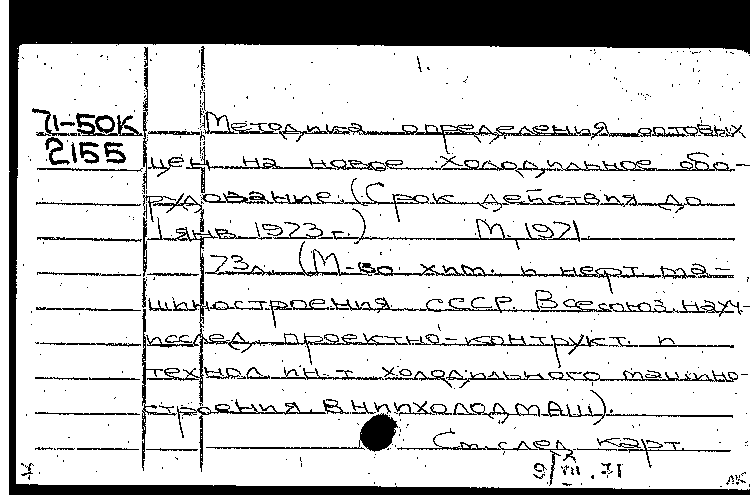 1.
71-50К Методика определения оптовых
2155 цен на новое холодильное обо-
рудование. (Срок действия до
1 янв. 1973 г.) М, 1971.
73л. (М-во хим. и нефт. ма-
шиностроения СССР. Всесоюз. науч-
исслед. проектно-контрукт. и
технол. ин-т холодильного машино-
строения. ВНИИХОЛОДМАШ).
См. след. карт.
7 9/VII.71